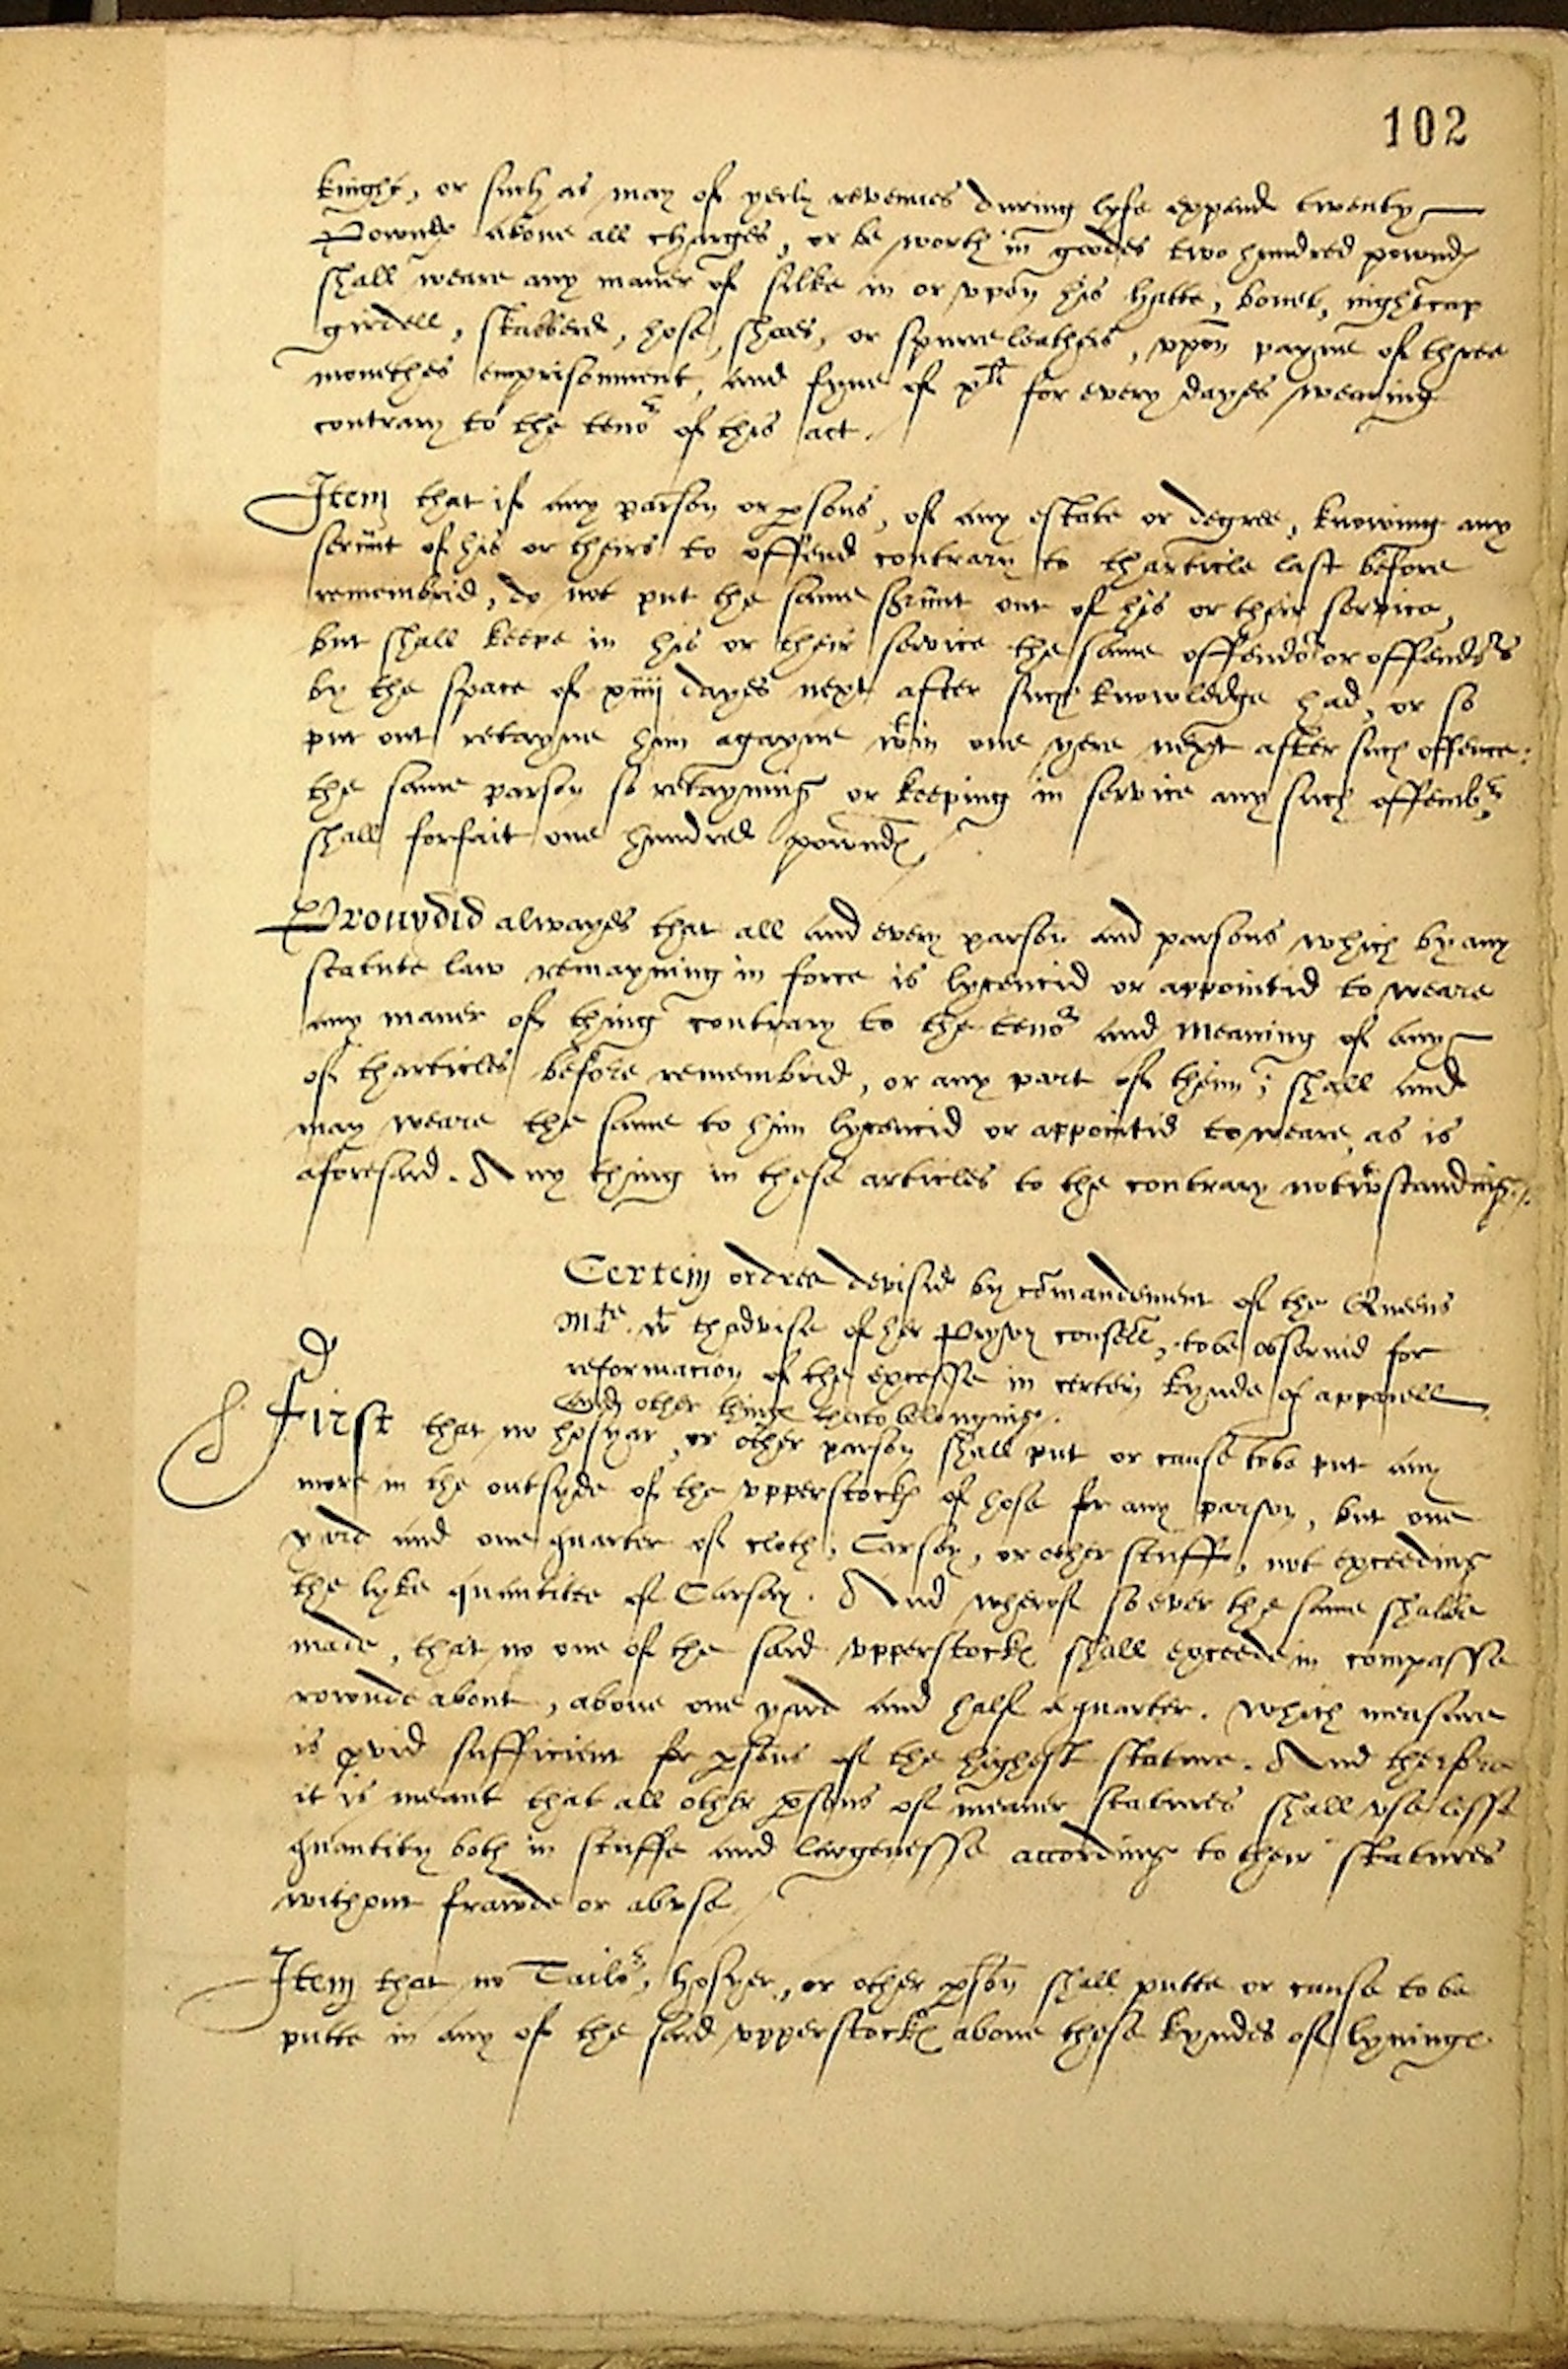 102
knight, or such as may of yerly revenues during lyfe expend twenty
Pownds above all charges, or be worth in goodes two hundred pownds
shall weare any maner of silke in or vpon his hatte, bonet, nightcap
girdell, skabberd, hose, shoes, or spurre leathers, vpon payne of three
monethes emprisonment, and fyne of xli for every dayes wearing
contrary to the tenor of this act.
Item that if any parson or psons, of any estate or degree, knowing any
seruunt of his or theirs to offend contrary to tharticle last before
remembrid, do not put the same seruunt out of his or their service,
but shall keepe in his or their service the same offendor or offendors
by the space of xiiij dayes next after such knowledge had, or so
put out retayne him agayne wtin one yere next after such offence:
the same parson so retayning or keeping in service any such offendor
shall forfait one hundred pownds
Prouydid alwayes that all and every parson and parsons which by any
statute law remayning in force is lycencid or appointid to weare
any maner of thing contrary to the tenor and meaning of any
of tharticles before remembrid, or any part of them; shall and
may weare the same to him lycencid or appointid to weare, as is
aforesaid. Any thing in these articles to the contrary notwtstanding.
Certein ordres devisid by comandement of the Queens
Mtie. wt thadvise of her Pryvy consell, to be obseruid for
reformacion of the excesse in certein kynds of apparell
and other things therto belonginge.
First that no hosyar, or other parson shall put or cause to be put any
more in the outsyde of the vpperstocks of hose for any parson, but one
yard and one quarter of cloth, Carsey, or other stuff, not exceeding
the lyke quantitee of Carsey. And wherof so ever the same shalbe
made, that no one of the said vpperstocks shall exceede in compasse
rownde about, above one yard and half a quarter. Which measure
is pvid sufficient for psons of the highest stature. And therfore
it is meant that all other psons of meaner statures shall vse lesse
quantity both in stuffe and largenesse according to their statures
without frawde or abvse
Item that no Tailor, hosyer, or other pson shall putte or cause to be
putte in any of the said vpperstocks above these kyndes of lyninge